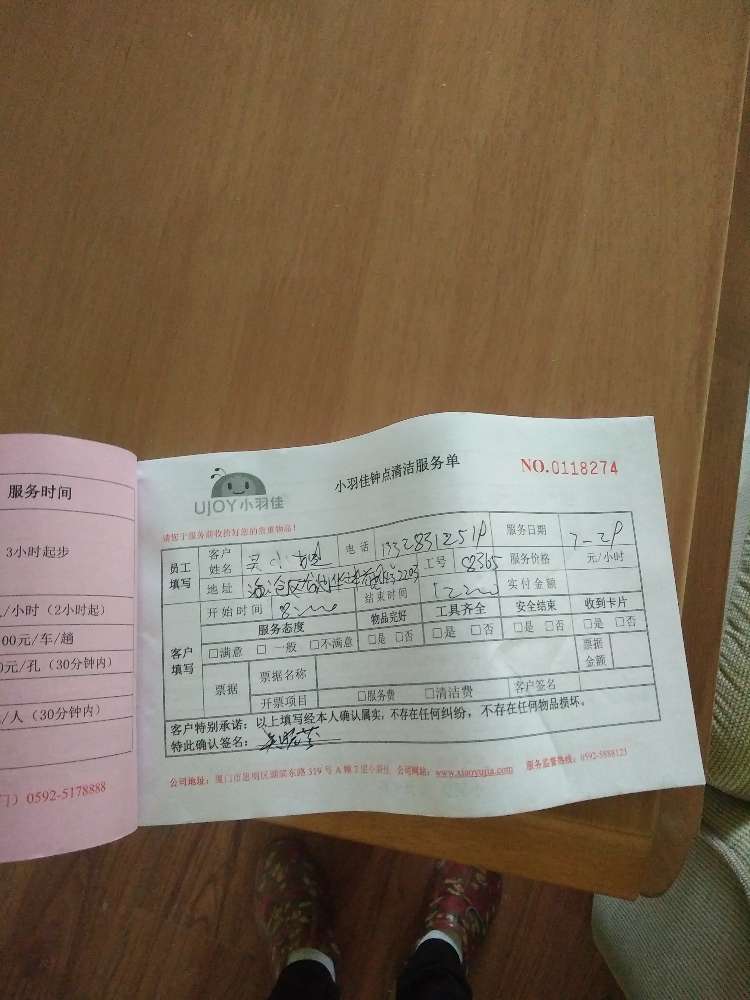 服务时间
3小时起步
/小时（2小时起）
00元/车/趟
0元/孔（30分钟内）
/人（30分钟内）
门）0592-5178888
UJOY小羽佳
小羽佳钟点清洁服务单
NO.0118274
请您于服务前收拾好您的贵重物品！
员工填写 客户姓名 吴小 电话 服务日期
地址 海沧区 2203 工号 08365 服务价格 元/小时
开始时间 8:00 结束时间 12:00 实付金额
客户填写 服务态度 物品完好 工具齐全 安全结束 收到卡片
□满意 □一般 □不满意 □是 □否 □是 □否 □是 □否 □是 □否
票据 票据名称 票据金额
开票项目 □服务费 □清洁费 客户签名
客户特别承诺：以上填写经本人确认属实，不存在任何纠纷，不存在任何物品损坏。
特此确认签名：
公司地址：厦门市思明区湖滨东路319号A幢7层小羽佳 公司网站：www.xiaoyujia.com 服务监督热线：0592-5888123